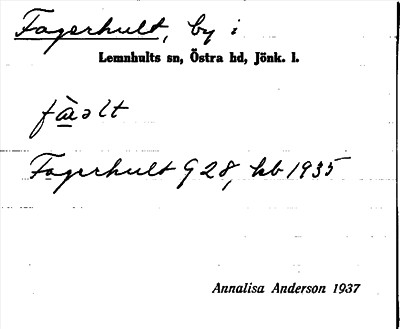 Fagerhult, by i
Lemnhults sn, Östra hd, Jönk. l.
fàəlt
Fagerhult G 28, kb 1935
Annalisa Anderson 1937